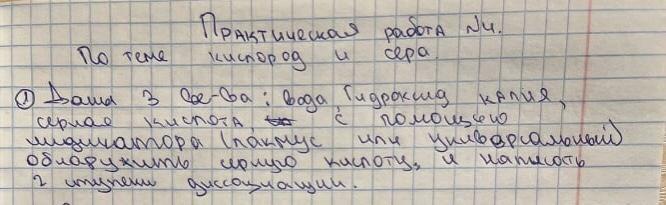 Практическая работа №4.
По теме кислород и сера.
① Даны 3 в-ва: вода, гидроксид калия,
серная кислота, с помощью
индикатора (лакмус или универсальный)
обнаружить серную кислоту, и написать
2 ступени диссоциации.